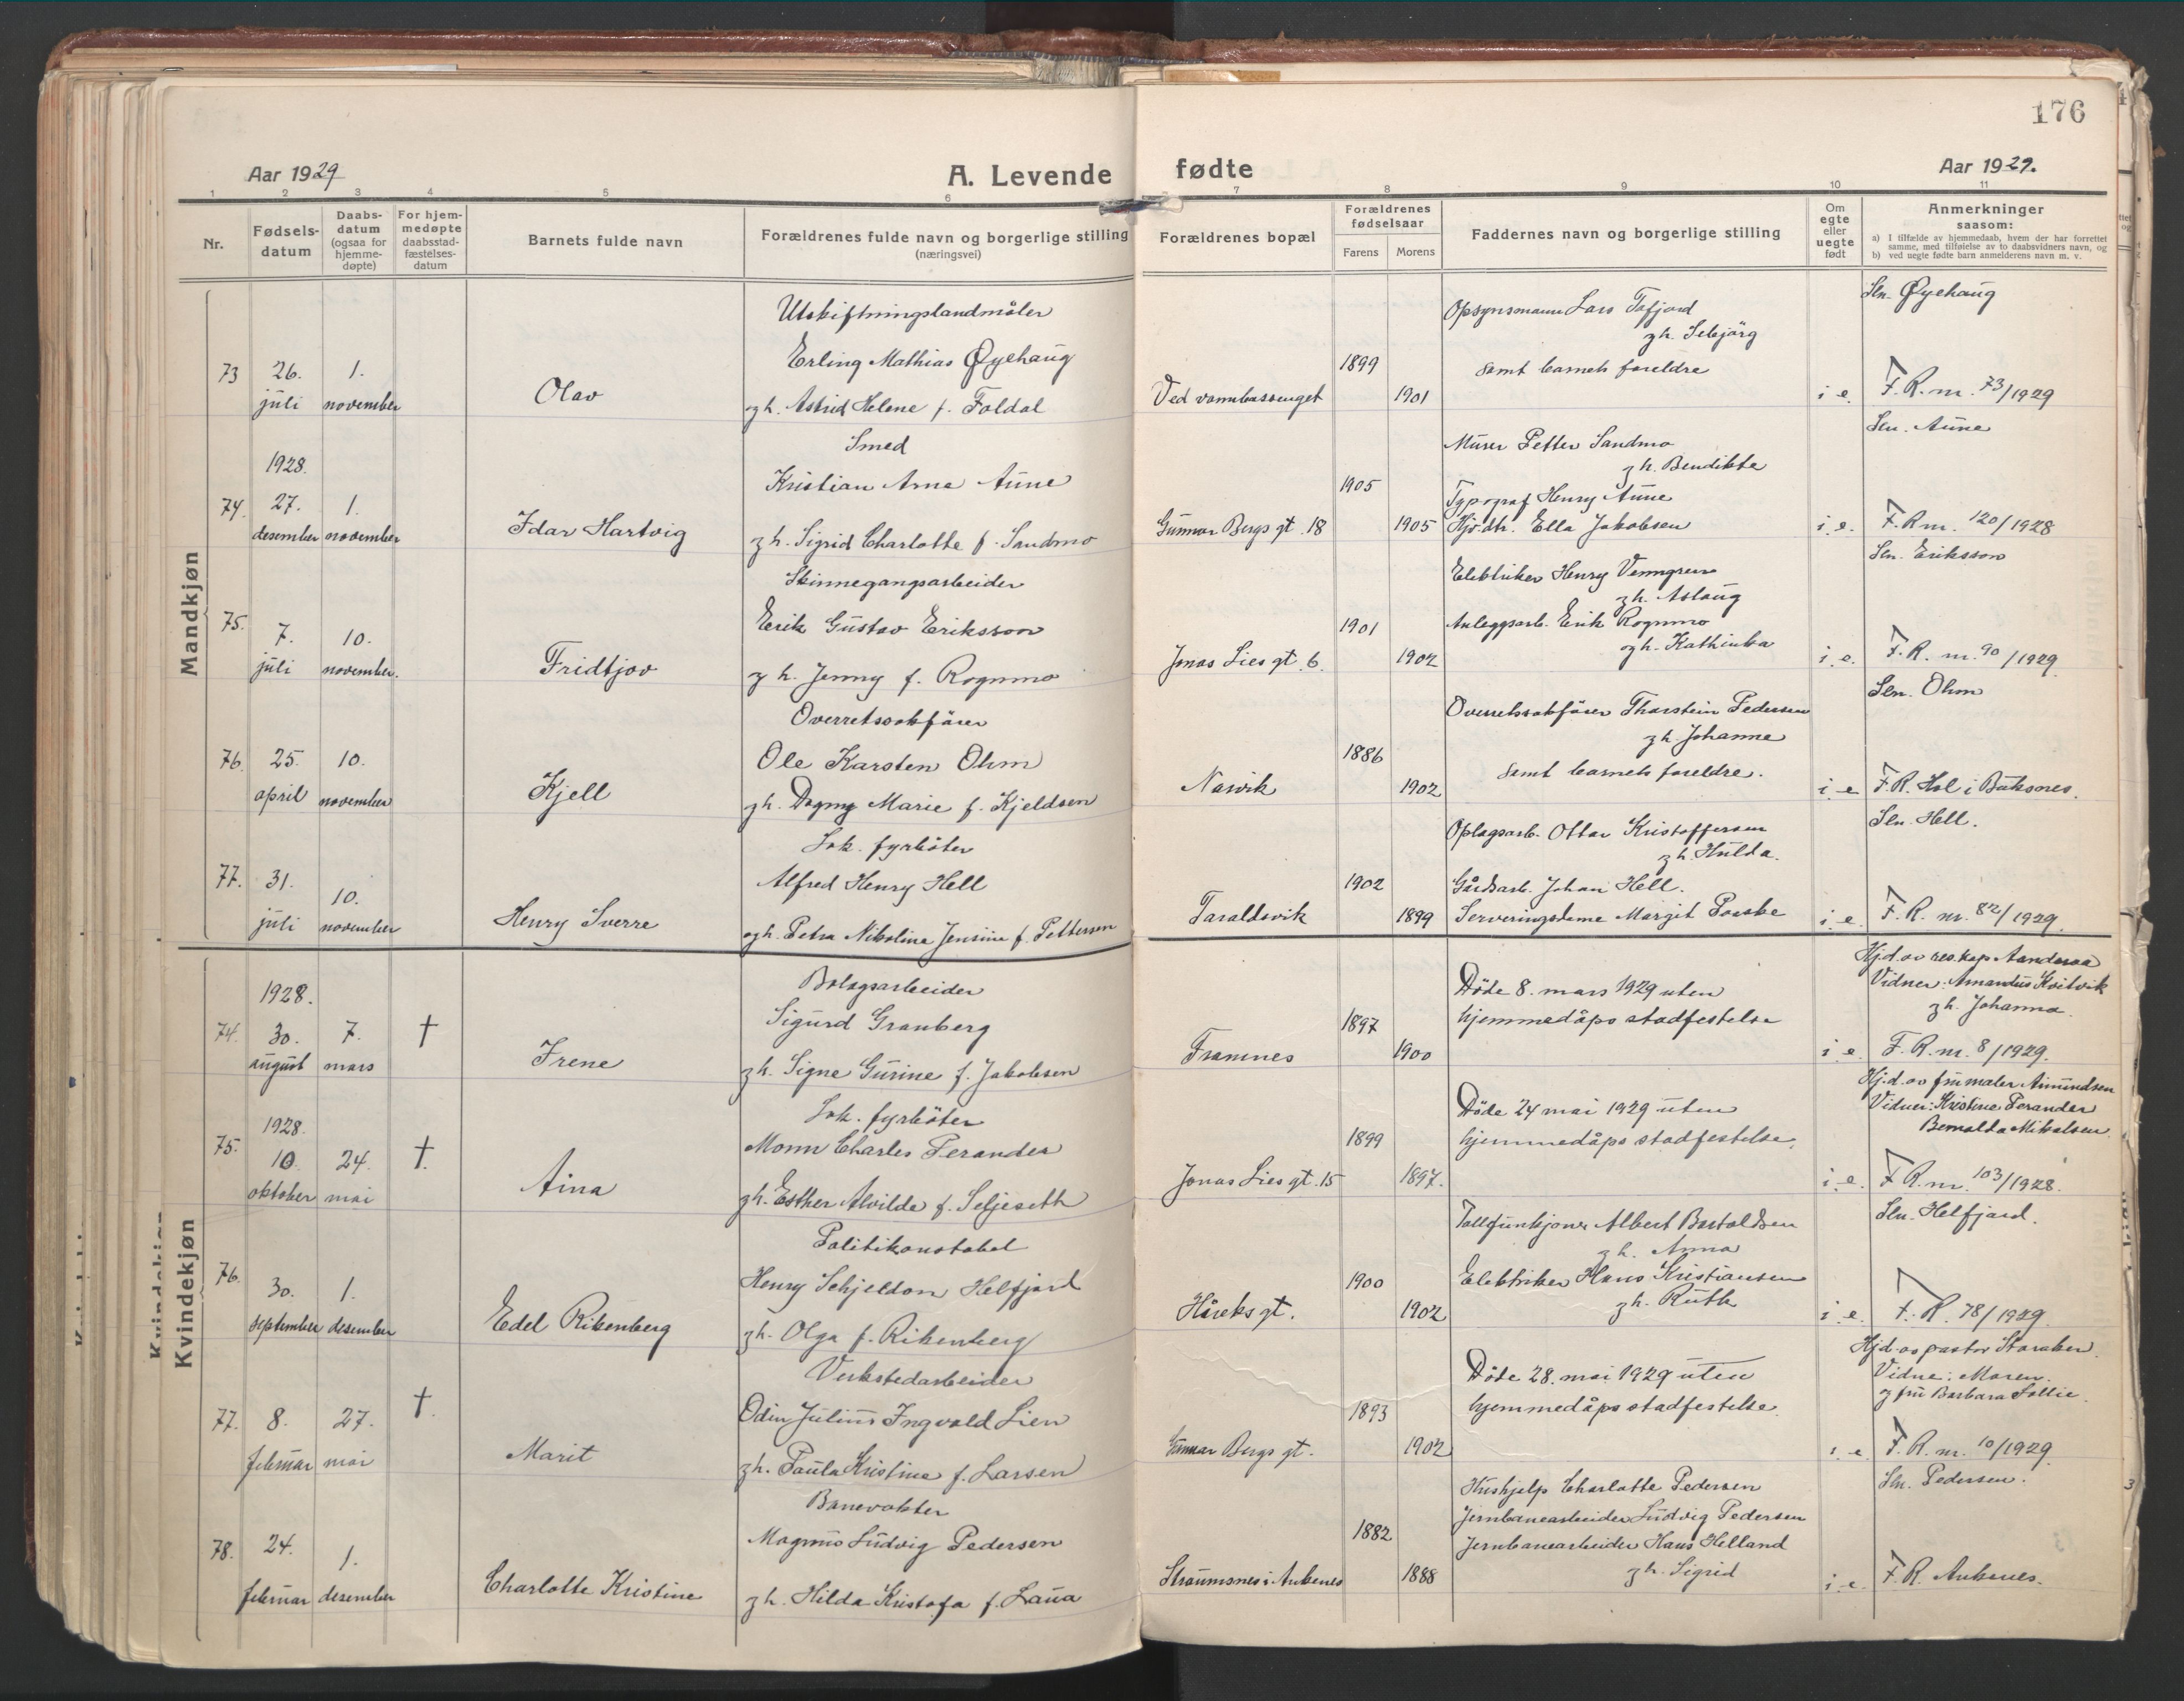 176
Aar 1929
A. Levende fødte
Aar 1929.
1 2 3 4 5 6 7 8 9 10 11
Nr.
Fødsels-
datum
Daabs-
datum
(ogsaa for
hjemme-
døpte)
For hjem-
medøpte
daabsstad-
fæstelses-
datum
Barnets fulde navn
Forældrenes fulde navn og borgerlige stilling
(næringsvei)
Forældrenes bopæl
Forældrenes
fødselsaar
Farens Morens
Faddernes navn og borgerlige stilling
Om
egte
eller
uegte
født
Anmerkninger
saasom:
a) I tilfælde av hjemmedaab, hvem der har forrettet
samme, med tilføielse av to daabsvidners navn, og
b) ved uegte fødte barn anmelderens navn m. v.
Mandkjøn
73 26. juli
1. november
Olav
Utskiftningslandmåler
Erling Mathias Øyehaug
og h. Astrid Helene f. Foldal
Ved vannbassenget
1899
1901
Opsynsmann Lars Tafjord
og h.
samt barnets foreldre
i e.
Sln. Øyehaug
F. R. nr. 73/1929
74. 1928.
27. desember
1. november
Idar Hartvig
Smed
Kristian Arne Aune
og h. Sigrid Charlotte f. Sandmo
Gunnar Bergs gt. 18
1905
1905
Murer Petter Sandmo
og h. Bendikte
Typograf Henry Aune
Hjv. dtr. Ella Jakobsen
i. e.
Sln. Aune
F. R. nr. 120/1928
75. 7. juli
10. november.
Fridtjov
Skinnegangsarbeider
Erik Gustav Eriksson
og h. Jenny f. Rognmo
Jonas Lies gt. 6.
1901
1902
Elektriker Henry Venngren
og h. Aslaug
Anleggsarb. Erik Rognmo
og h. Kathinka
i. e.
Sln. Eriksson
F. R. nr. 90/1929
76. 25. april
10. november
Kjell
Overretssakfører
Ole Karsten Ohm
og h. Dagny Marie f. Kjeldsen
Narvik
1886
1902
Overretssakfører Thorstein Pedersen
og h. Johanne
samt barnets foreldre.
i. e
Sln. Ohm
F. R. Hol i Buksnes.
77. 31. juli
10. november
Henry Sverre
Lok. fyrbøter
Alfred Henry Hell
og h. Petra Nikoline Jensine f. Pettersen
Taraldsvik
1902
1899
Oplagsarb. Ottar Kristoffersen
og h. Hulda.
Gårdsarb. Johan Hell.
Serveringsdame Margit
i. e.
Sln. Hell.
F. R. nr. 82/1929.
Kvindekjøn
74. 1928.
30. august
7. mars
†
Irene
Bolagsarbeider
Sigurd Granberg
og h. Signe Gurine f. Jakobsen
Framnes
1897
1900
Døde 8. mars 1929 uten
hjemmedåps stadfestelse
i e.
Hj.d. av res. kap. Aandesaa
Vidner: Amandus Kvitvik
og h. Johanna.
F. R. nr. 8/1929.
75. 1928.
10. oktober
24. mai
†.
Aina
Lok. fyrbøter
Monn Charles Perander
og h. Esther Alvilde f. Seljeseth
Jonas Lies gt. 15
1899
1897.
Døde 24 mai 1929 uten
hjemmedåps stadfestelse.
i. e.
Hj.d. av fru maler Amundsen
Vidner: Kristine Perander
Mikalsen.
F. R. nr. 103/1928.
76. 30. september
1. desember
Edel Rikenberg
Politikonstabel
Henry Schjeldon Helfjord
og h. Olga f. Rikenberg
Håreks gt.
1900
1902
Tollfunksjonær Albert Bartoldsen
og h. Anna
Elektriker Hans Kristiansen
og h. Ruth
i. e.
Sln. Helfjord.
F. R. 78/1929
77. 8. februar
27. mai
†.
Marit
Verkstedarbeider
Odin Julius Ingvald Lien
og h. Paula Kristine f. Larsen
Gunnar Bergs gt.
1893
1902
Døde 28. mai 1929 uten
hjemmedåps stadfestelse.
i. e
Hj.d. av pastor Storaker.
Vidne: Moren.
og fru Barbara Sollie.
F. R. nr. 10/1929
78. 24. februar
1. desember
Charlotte Kristine
Banevokter
Magnus Ludvig Pedersen
og h. Hilda Kristofa f. Laua
Straumsnes i Ankenes
1882
1888
Hushjelp Charlotte Pedersen
Jernbanearbeider Ludvig Pedersen
Jernbanearbeider Hans Helland
og h. Sigrid
i. e.
Sln. Pedersen.
F. R. Ankenes.